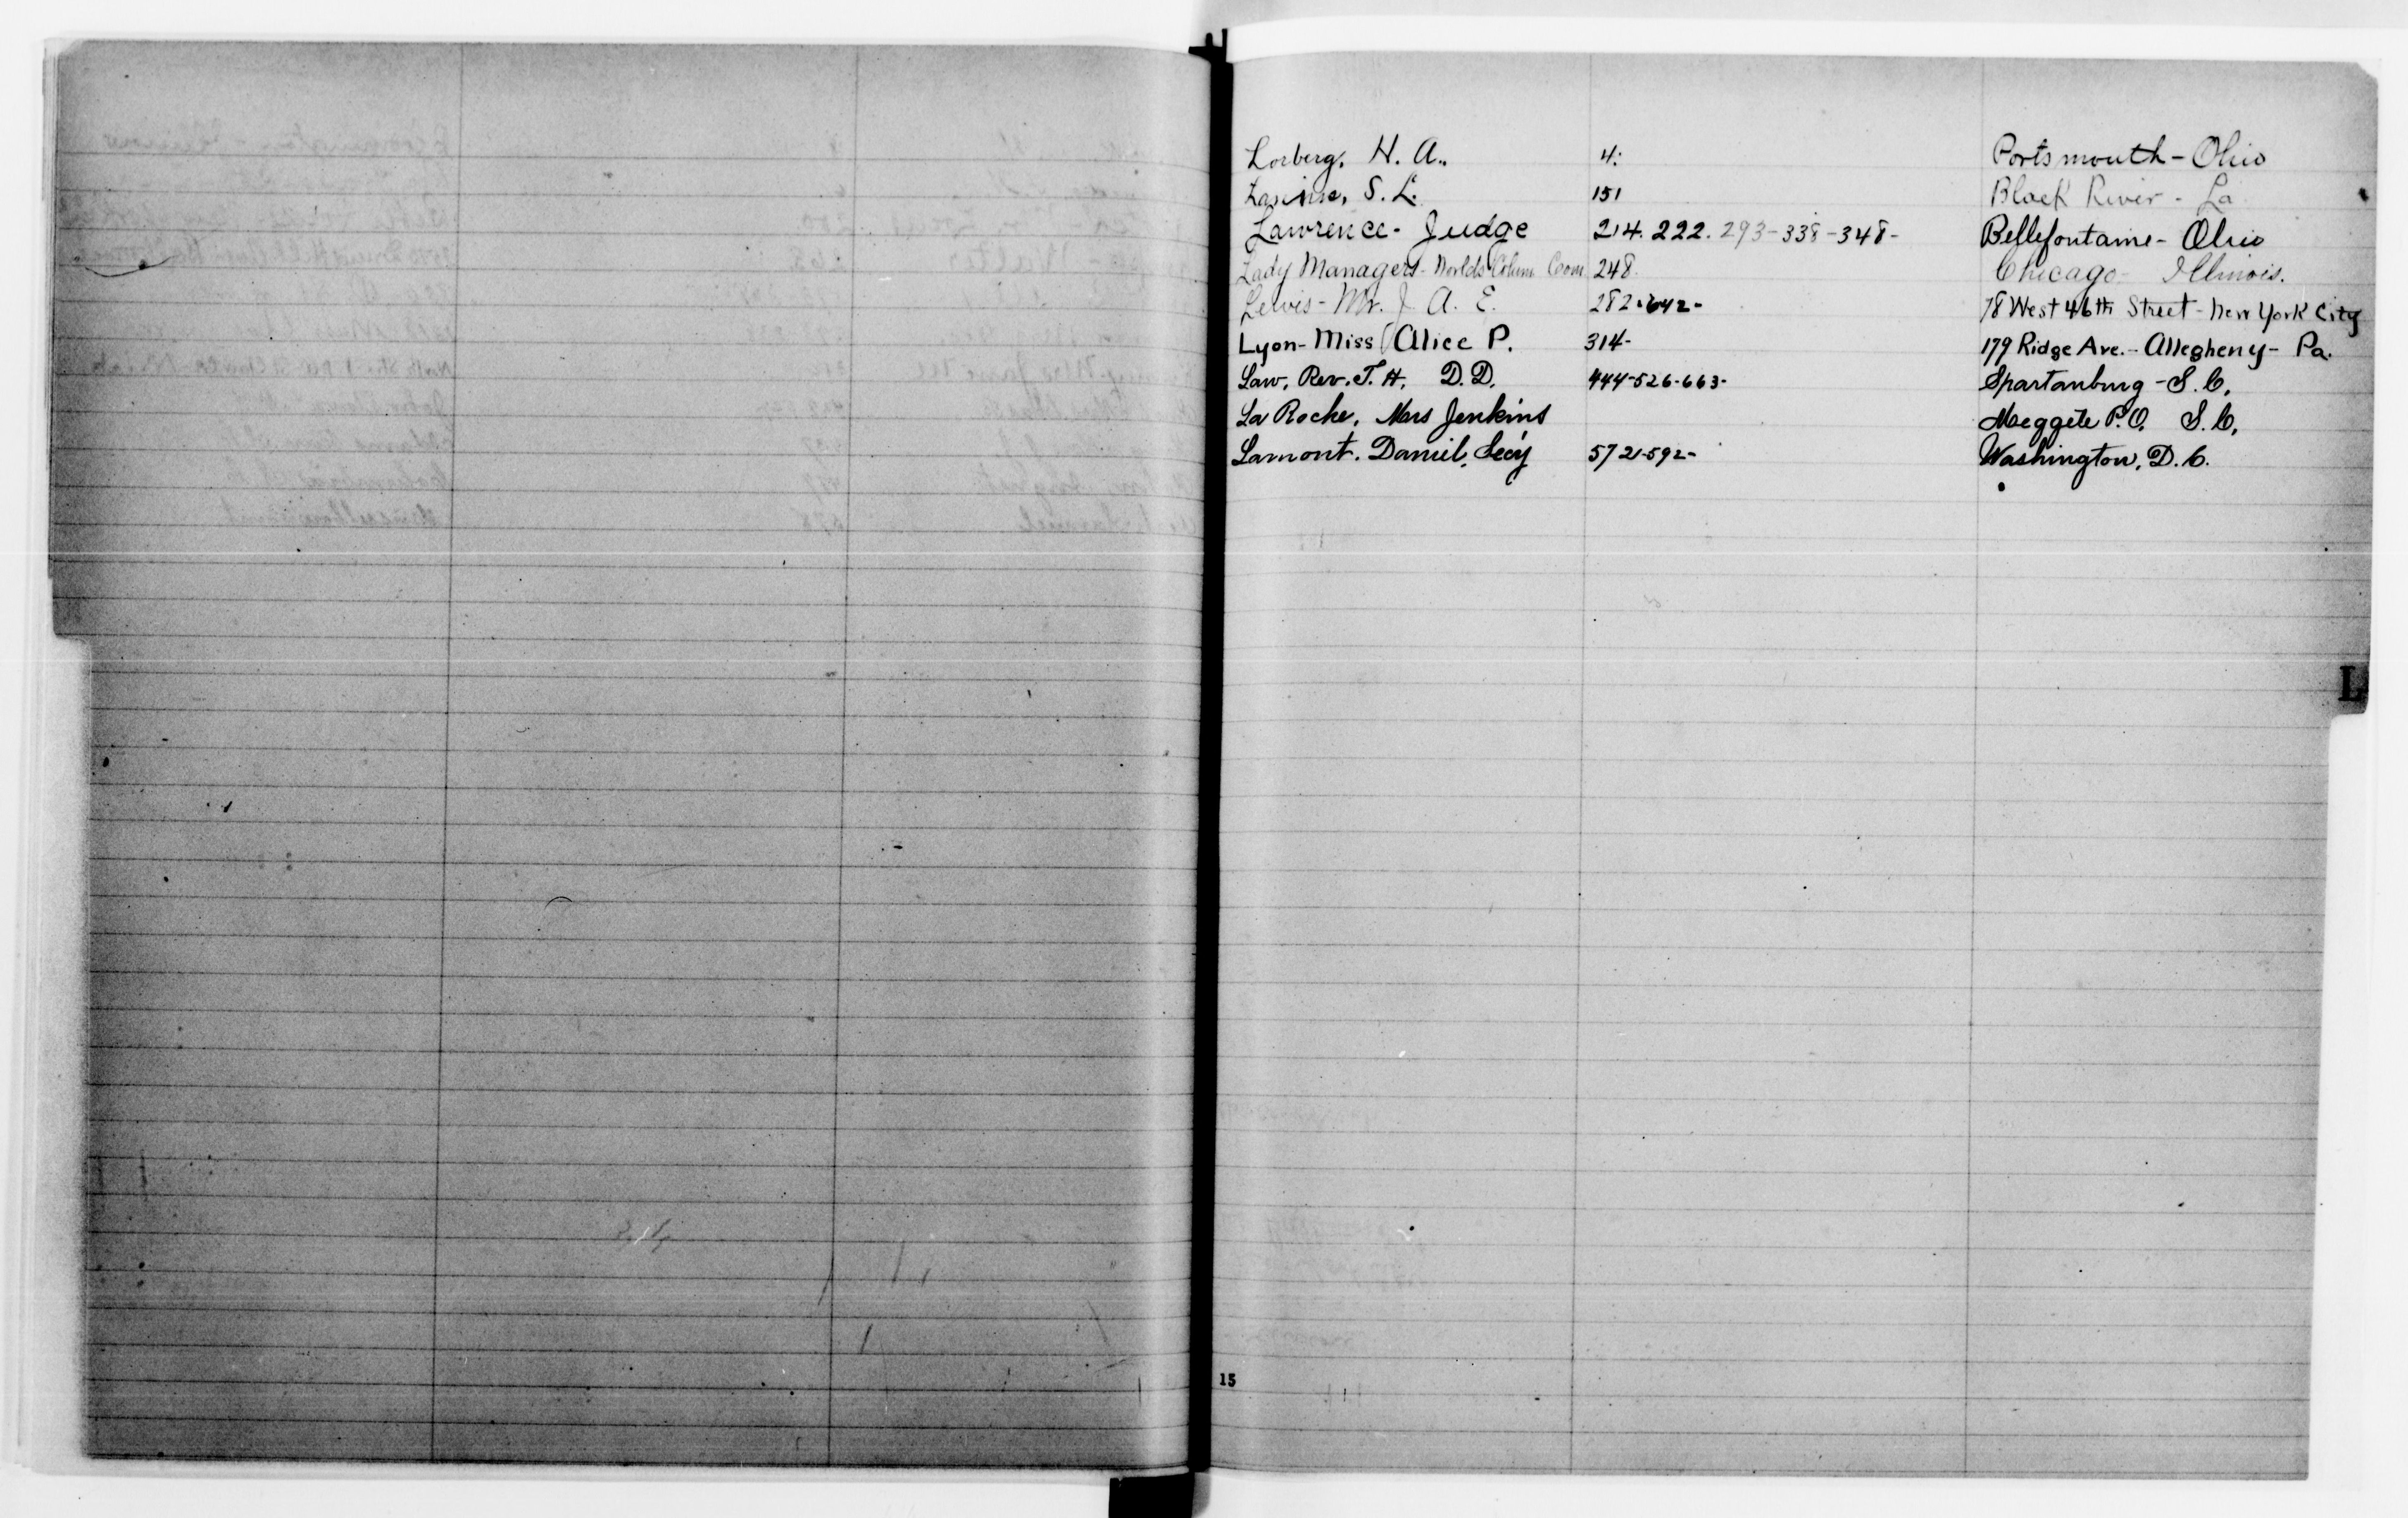 Lorberg, H. A., 4. Portsmouth - Ohio
S. L. 151 Black River - La
Lawrence - Judge 214. 222. 293 - 338 - 348 - Bellefontaine - Ohio
Lady Managers - Worlds Colum. Com. 248 Chicago - Illinois.
Lewis - Mr. J. A. E. 282 - 642 - 78 West 46th Street - New York City
Lyon - Miss Alice P. 314 - 179 Ridge Ave. - Allegheny - Pa.
Law, Rev. T. H. D.D. 444 - 526 - 663 - Spartanburg - S. C.
La Roche, Mrs Jenkins Meggete P.O. S. C.
Lamont. Daniel, Sec'y 572 - 592 - Washington, D. C.
L
15